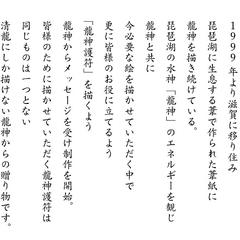 1999年より滋賀に移り住み
琵琶湖に生息する葦で作られた葦紙に
龍神を描き続けている。
琵琶湖の水神「龍神」のエネルギーを観じ
龍神と共に
今必要な絵を描かせていただく中で
更に皆様のお役に立てるよう
「龍神護符」を描くよう
龍神からメッセージを受け制作を開始。
皆様のために描かせていただく龍神護符は
同じものは一つとない
清龍にしか描けない龍神からの贈り物です。